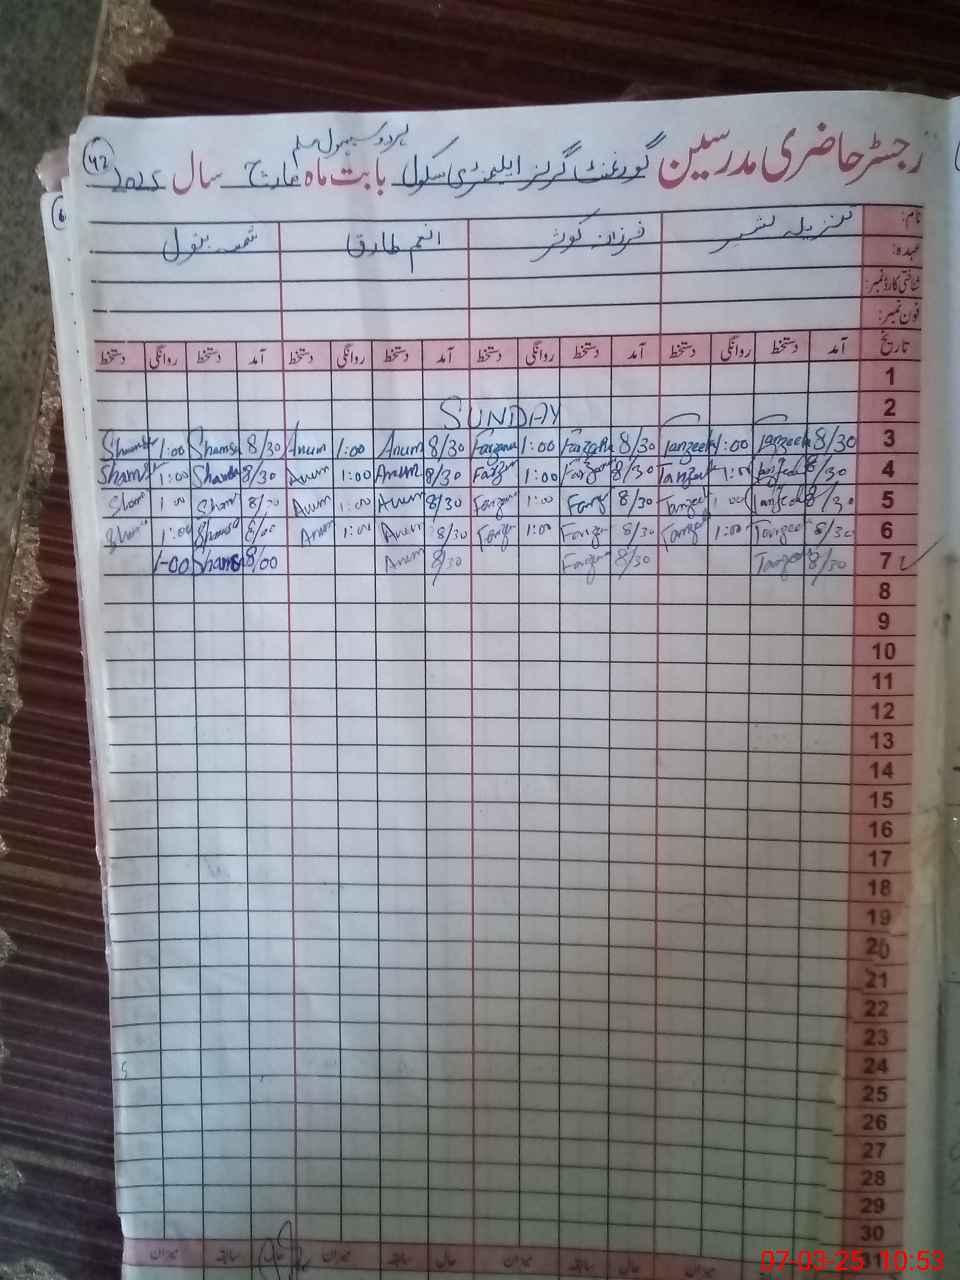 42
رجسٹر حاضری مدرسین گورنمنٹ گرلز ایلیمنٹری سکول بابت ماہ مارچ سال 2025
نام: تنزیلہ بشیر فرزانہ کوثر انعم طارق شمسہ بتول
عہدہ:
شناختی کارڈ نمبر:
فون نمبر:
تاریخ آمد دستخط روانگی دستخط آمد دستخط روانگی دستخط آمد دستخط روانگی دستخط آمد دستخط روانگی دستخط
1
SUNDAY 2
1:00 Shamsa 8/30 Anum 1:00 Anum 8/30 Farzana 1:00 Farzana 8/30 Tanzeela 1:00 Tanzeela 8/30 3
1:00 8/30 Anum 1:00 Anum 8/30 1:00 Farzana 8/30 1:00 8/30 4
Sham 1:00 Sham 8/30 Anum 1:00 Anum 8/30 1:00 8/30 1:00 8/30 5
1:00 8/00 Anum 1:00 Anum 8/30 1:00 8/30 1:00 8/30 6
1-00 Shamsa 8/00 Anum 8/30 8/30 8/30 7
8
9
10
11
12
13
14
15
16
17
18
19
20
21
22
23
24
25
26
27
28
29
30
31
حال سابقہ میزان حال سابقہ میزان حال سابقہ میزان
07-03-25 10:53